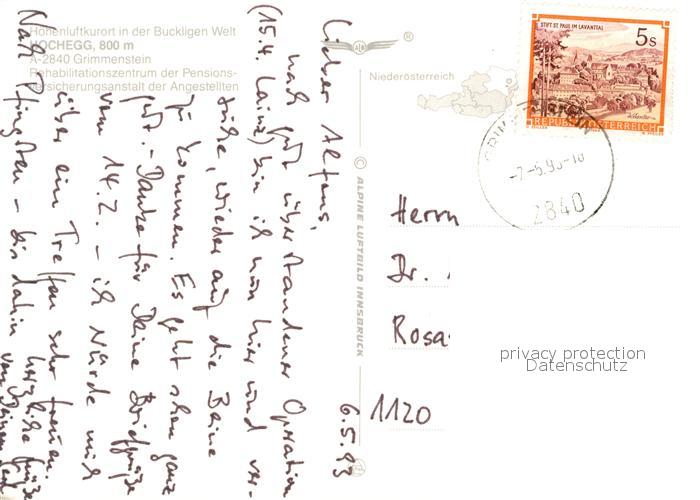 Höhenluftkurort in der Buckligen Welt
HOCHEGG, 800 m
A-2840 Grimmenstein
Rehabilitationszentrum der Pensions-
versicherungsanstalt der Angestellten
®
Niederösterreich
STIFT ST. PAUL IM LAVANTTAL
5 S
REPUBLIK ÖSTERREICH
GRIMMENSTEIN
-7.-5.93-10
2840
© ALPINE LUFTBILD INNSBRUCK
6.5.93
Lieber Alfons,
nach gut überstandener Operation
(15.4. Lainz) bin ich nun hier und ver-
suche, wieder auf die Beine
zu kommen. Es geht schon ganz
gut. - Danke für Deine Briefgrüße
vom 14.2. - ich würde mich
über ein Treffen sehr freuen.
Nach Pfingsten - bis dahin herzliche Grüße
von Deinem
Herrn
Dr.
Rosa
1120
privacy protection
Datenschutz